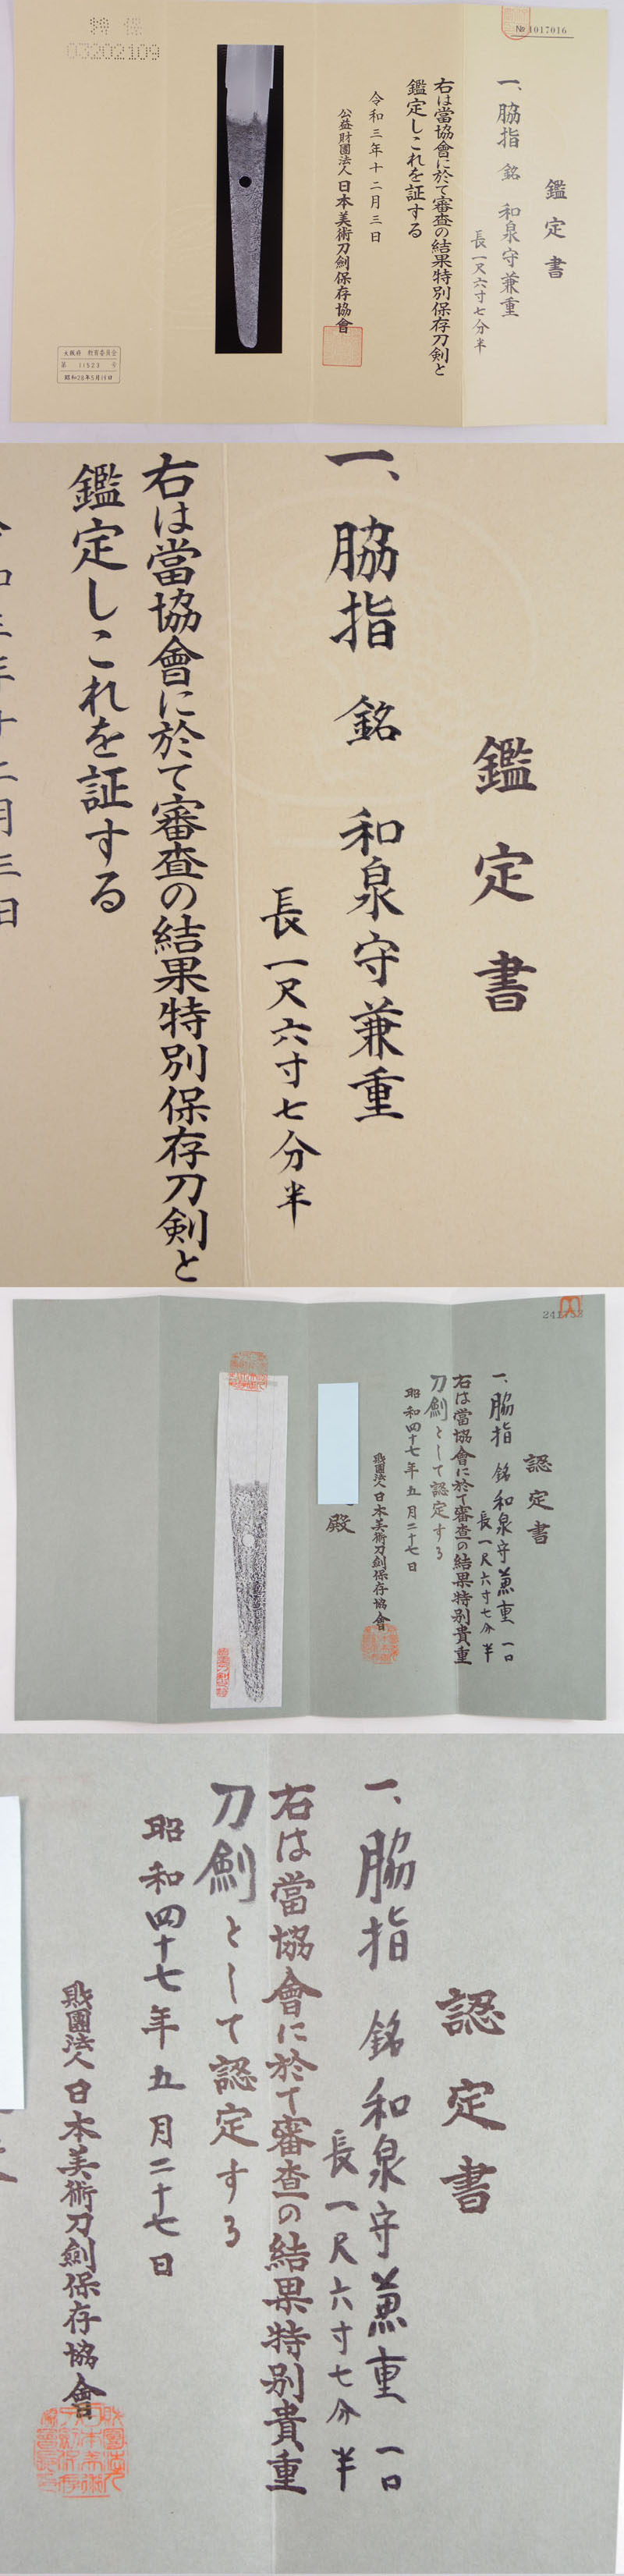 № 1017016
鑑定書
一、脇指 銘 和泉守兼重
長一尺六寸七分半
右は當協會に於て審査の結果特別保存刀剣と
鑑定しこれを証する
令和三年十二月三日
公益財團法人 日本美術刀劍保存協會
特 保
03202109
大阪府 教育委員会
第 11523 号
昭和26年5月18日
鑑定書
一、脇指 銘 和泉守兼重
長一尺六寸七分半
右は當協會に於て審査の結果特別保存刀剣と
鑑定しこれを証する
令和三年十二月三日
認定書
一、脇指 銘 和泉守兼重 一口
長一尺六寸七分半
右は當協會に於て審査の結果特別貴重
刀劍として認定する
昭和四十七年五月二十七日
財團法人日本美術刀劍保存協會
殿
認定書
一、脇指 銘 和泉守兼重 一口
長一尺六寸七分半
右は當協會に於て審査の結果特別貴重
刀劍として認定する
昭和四十七年五月二十七日
財團法人日本美術刀劍保存協會